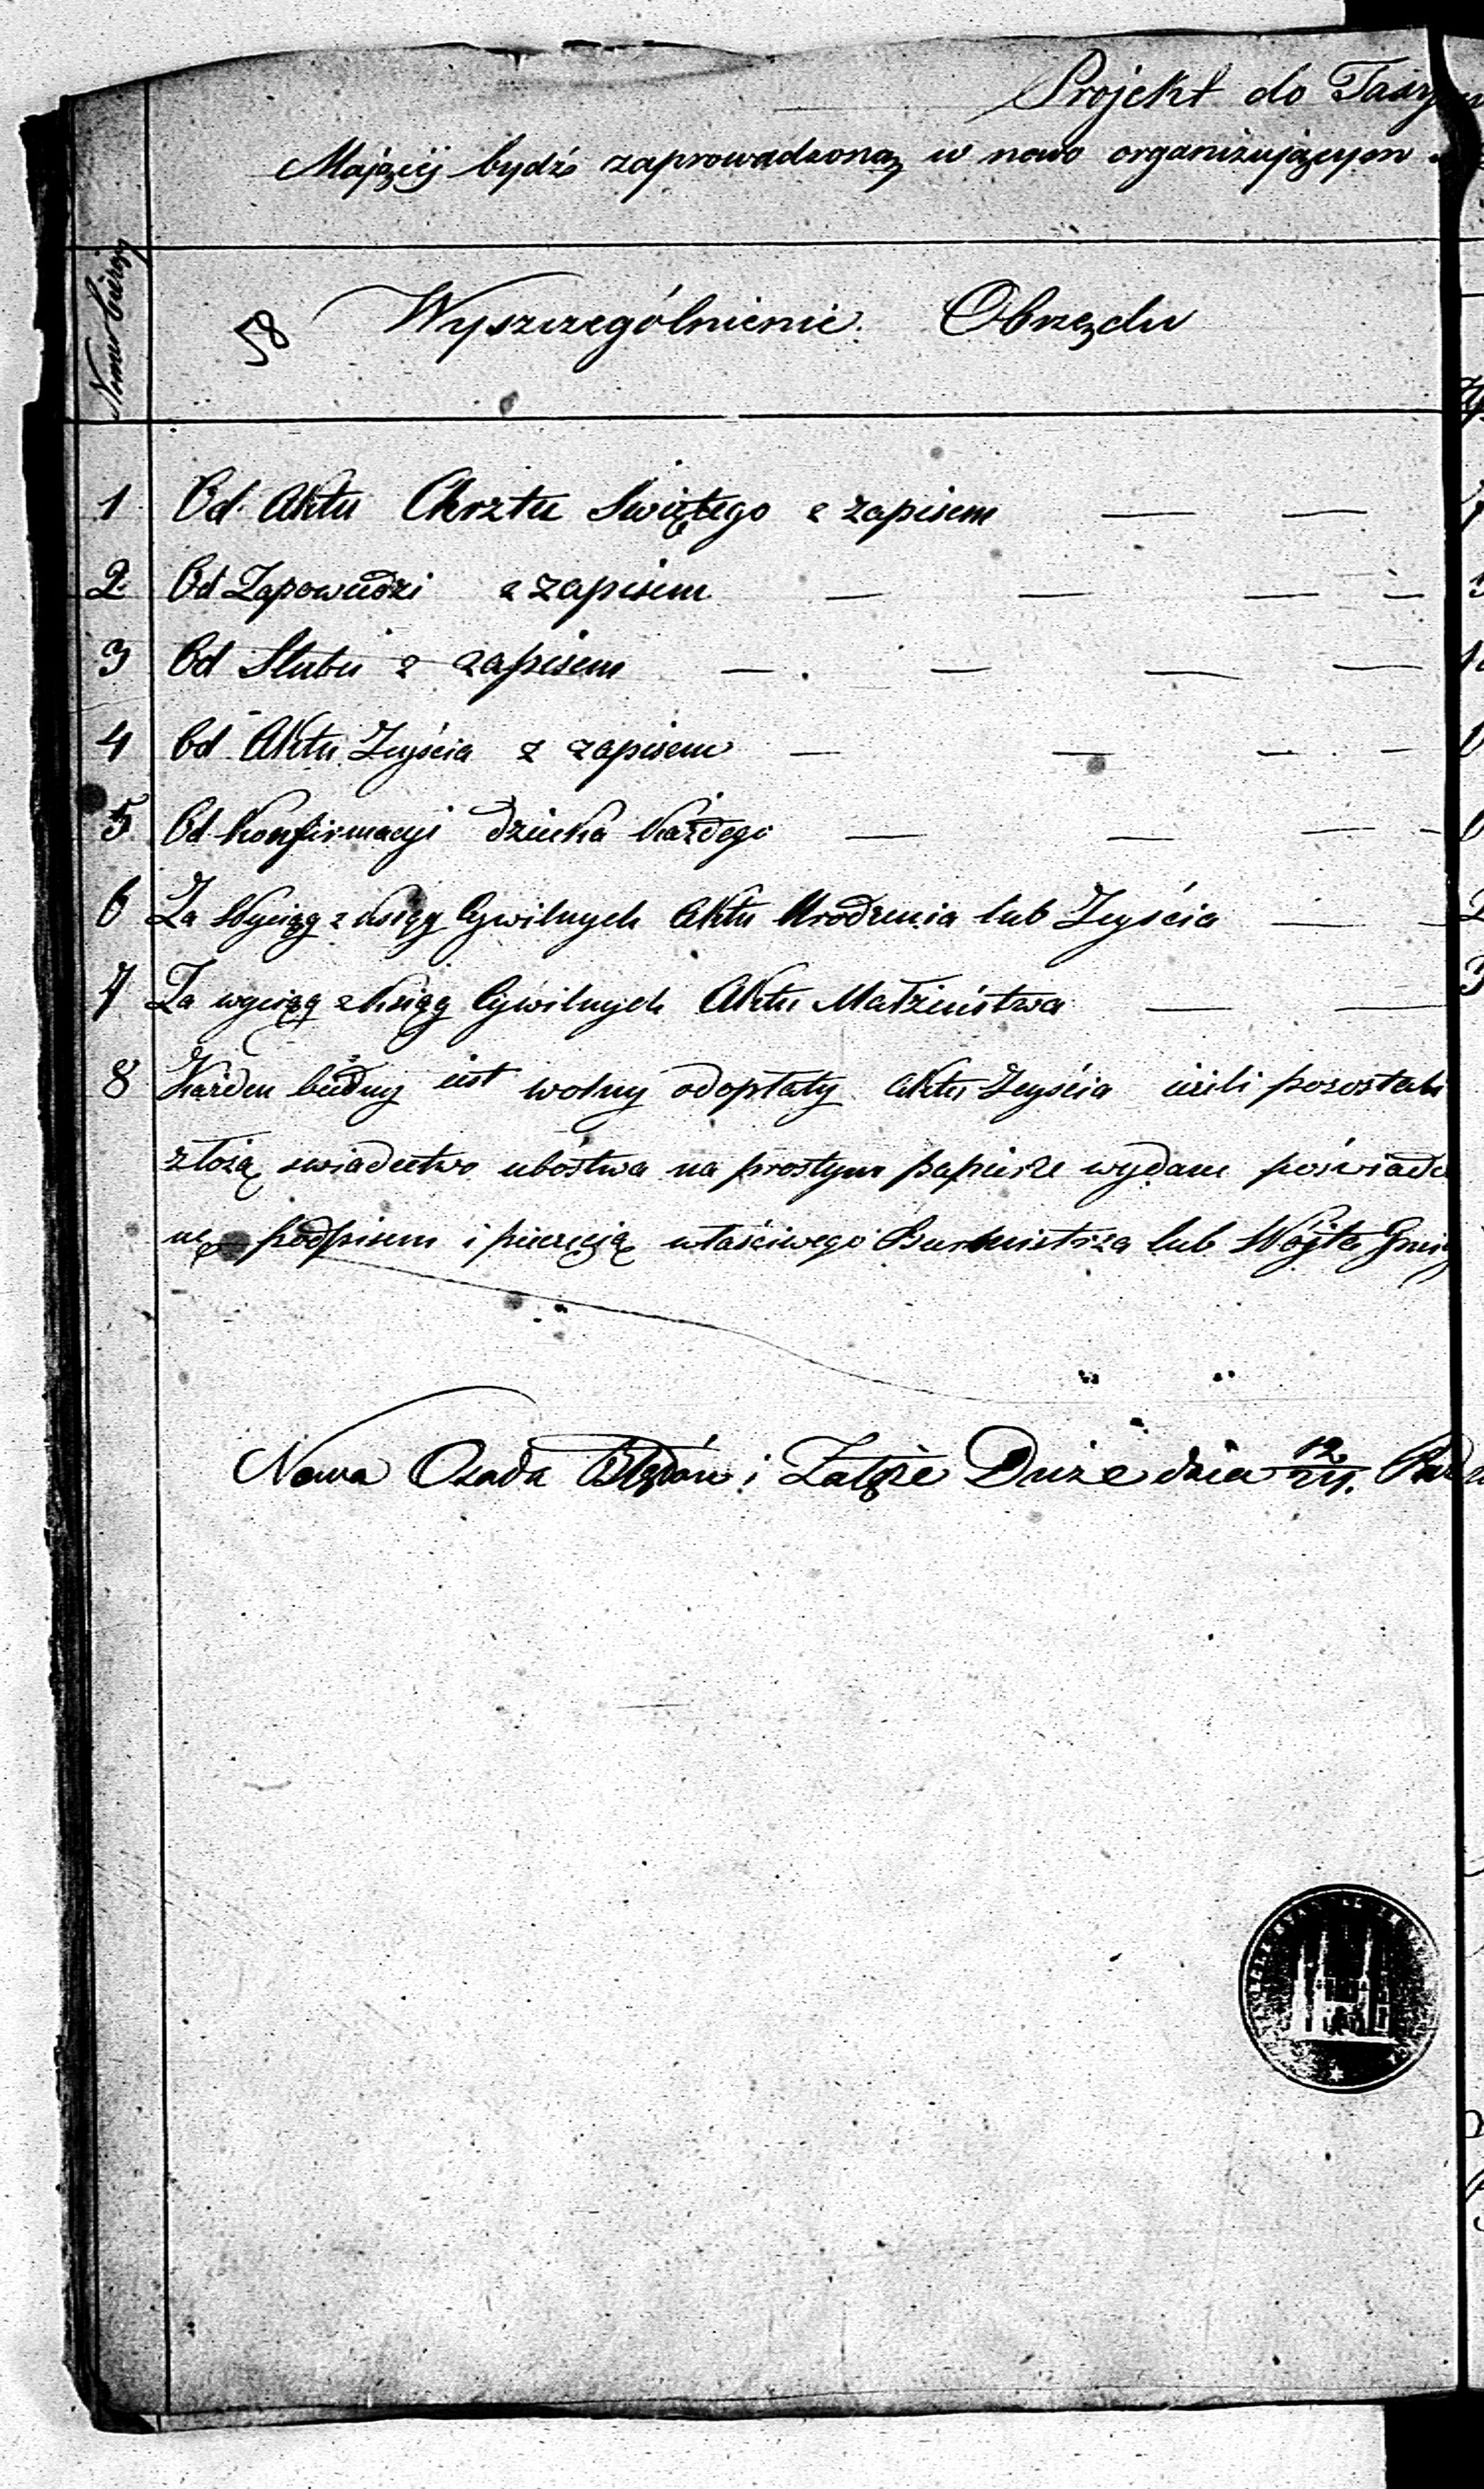 Projekt do
Mającéj bydź zaprowadzoną w nowo organizującym
Numer bieżący
58 Wyszczególnienie Obrzędu
1 Od Aktu Chrztu Swiętego z zapisem — —
2 Od Zapowiedzi z zapisem — — — —
3 Od Slubu z zapisem — — — —
4 Od Aktu Zeyścia z zapisem — — — —
5 Od Konfirmacyi dziecka każdego — — — —
6 Za Wyciąg z ksiąg Cywilnych Aktu Urodzenia lub Zeyścia — —
7 Za wyciąg z ksiąg Cywilnych Aktu Małżeństwa — —
8 Każden biedny iest wolny od opłaty Aktu Zeyścia ieżeli pozostali
złożą swiadectwo ubóstwa na prostym papierze wydane poświadczo
ne podpisem i pieczęcią właściwego Burmistrza lub Wójta Gminy
Nowa Osada i Załęże Duże dnia 12/24.